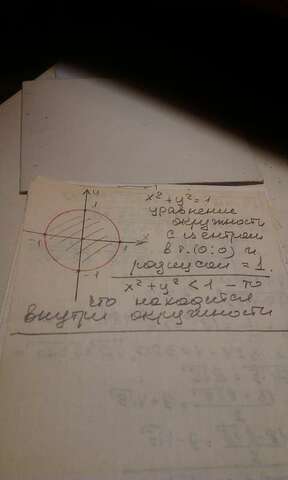 y
x² + y² = 1
1
уравнение
окружности
с центром
-1
1
x
в т. (0; 0) и
радиусом = 1.
-1
x² + y² < 1 — то
что находится
внутри окружности